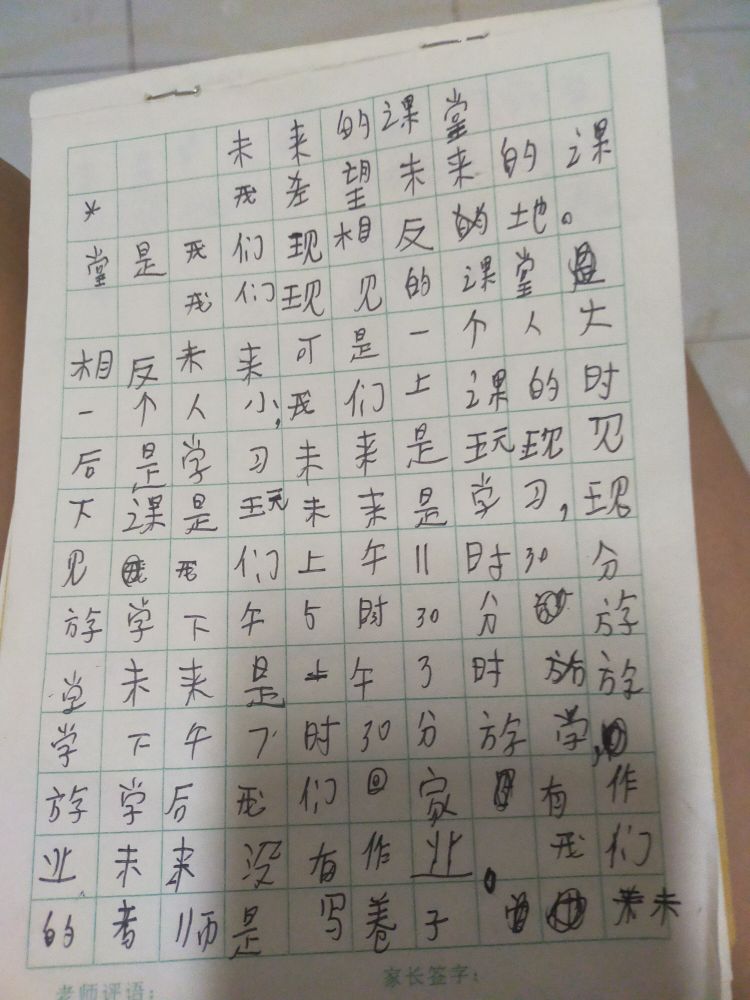 未来的课堂
* 我希望未来的课
堂是我们现相反的地。
我们现见的课堂是
相反未来可是一个人大
一个人小,我们上课的时
后是学习未来是玩现见
下课是玩未来是学习,现
见我们上午11时30分
放学下午5时30分放
学未来是上午3时放
学下午7时30分放学,
放学后我们回家有作
业未来没有作业。我们
的考师是写卷子未
老师评语:
家长签字: